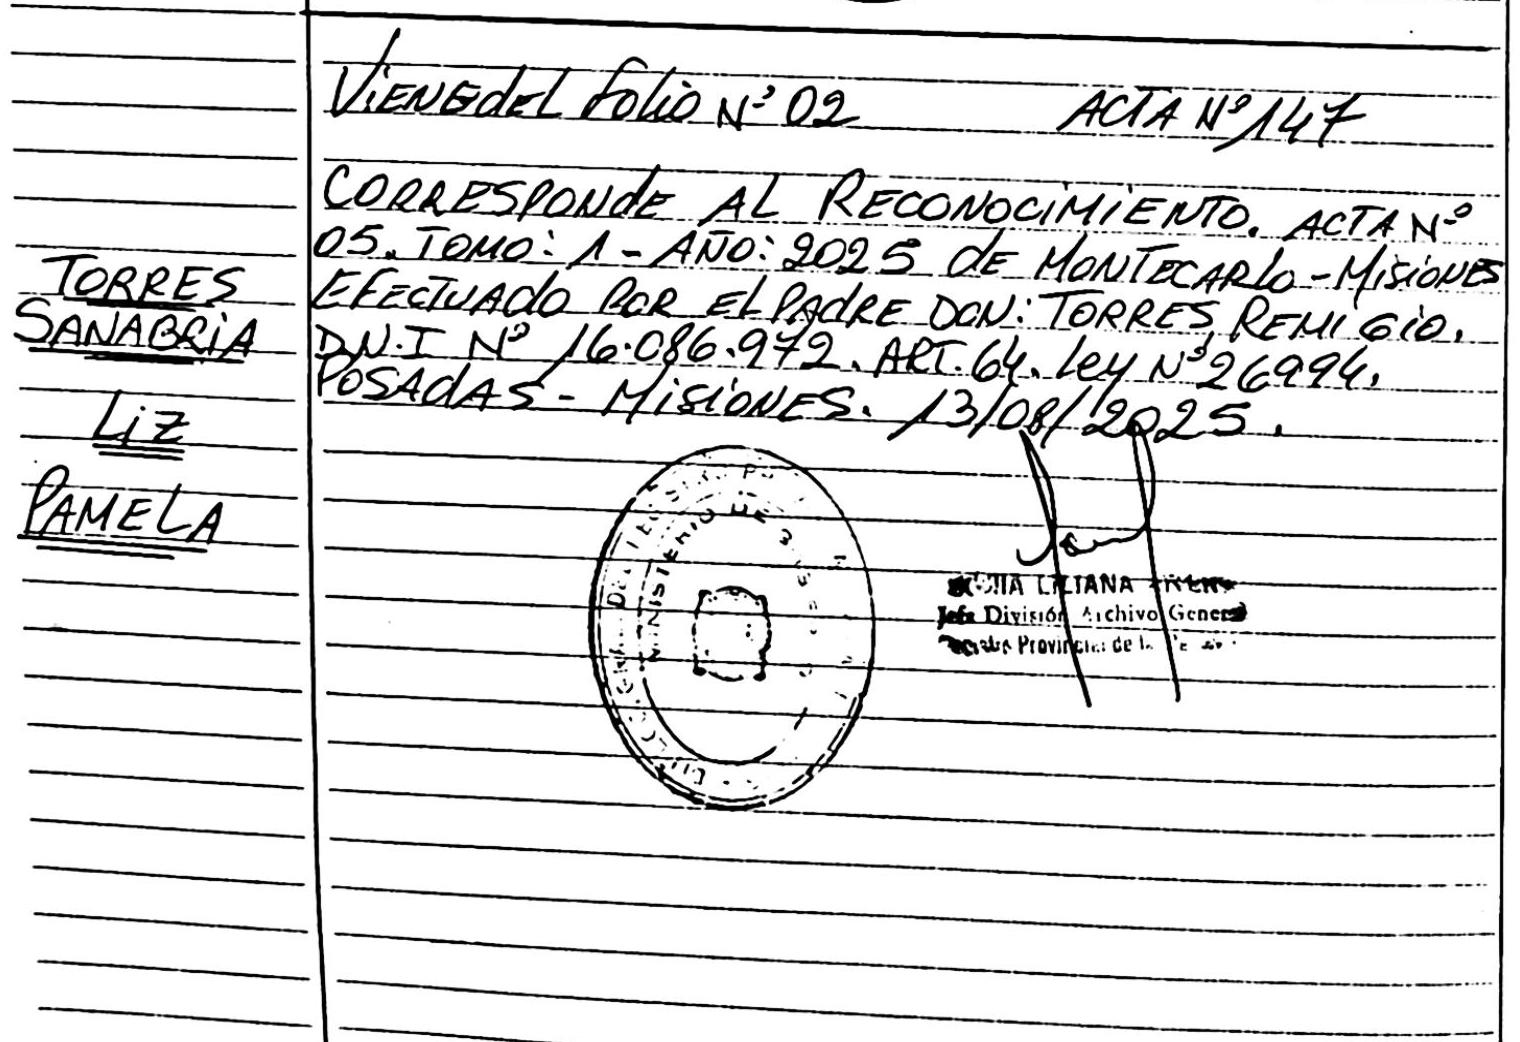 Viene del folio Nº 02 ACTA Nº 147
CORRESPONDE AL RECONOCIMIENTO. ACTA Nº
05. TOMO: 1 - AÑO: 2025 de MONTECARLO - MISIONES
EFECTUADO POR EL PADRE DON: TORRES, REMIGIO.
D.N.I Nº 16.086.972. ART. 64. Ley Nº 26994.
POSADAS - MISIONES. 13/08/2025.
TORRES
SANABRIA
LIZ
PAMELA
MINISTERIO DE
LILIANA
Jefe División Archivo General
Provincial de